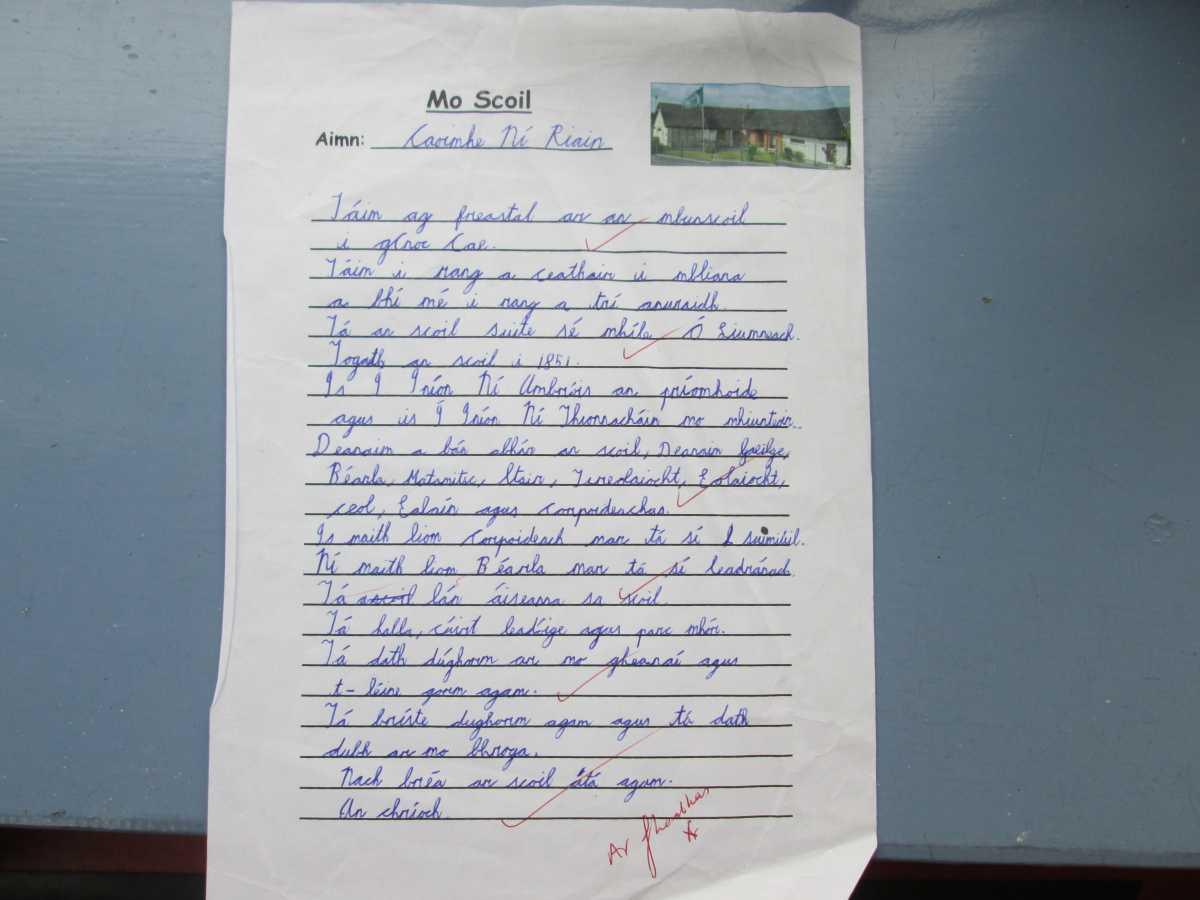 Mo Scoil
Aimn: Caoimhe Ní Riain
Táim ag freastal ar an mbunscoil
i gCnoc Cae.
Táim i rang a ceathair i mbliana
a bhí mé i rang a trí anuraidh.
Tá an scoil suite sé mhíle Ó Liumneach.
Togath an scoil i 1851.
Is Í Iníon Ní Ambróis an príomhoide
agus is Í Iníon Ní Thionnacháin mo mhúinteoir.
Deanaim a lán abhár ar scoil, Deanaim Gaeilge,
Béarla, Matamitic, Stair, Tireolaíocht, Eolaíocht,
ceol, Ealaín agus Corpoideachas.
Is maith liom Corpoideach mar tá sí suimiúil.
Ní maith liom Béarla mar tá sí leadránach.
Tá lán áiseanna sa scoil.
Tá halla, cúirt leadóige agus parc mhór.
Tá dath dúghorm ar mo gheansaí agus
t-léine gorm agam.
Tá bríste dughorm agam agus tá dath
dubh ar mo bhroga.
Nach bréa an scoil átá agam.
An chríoch.
Ar fheabhas